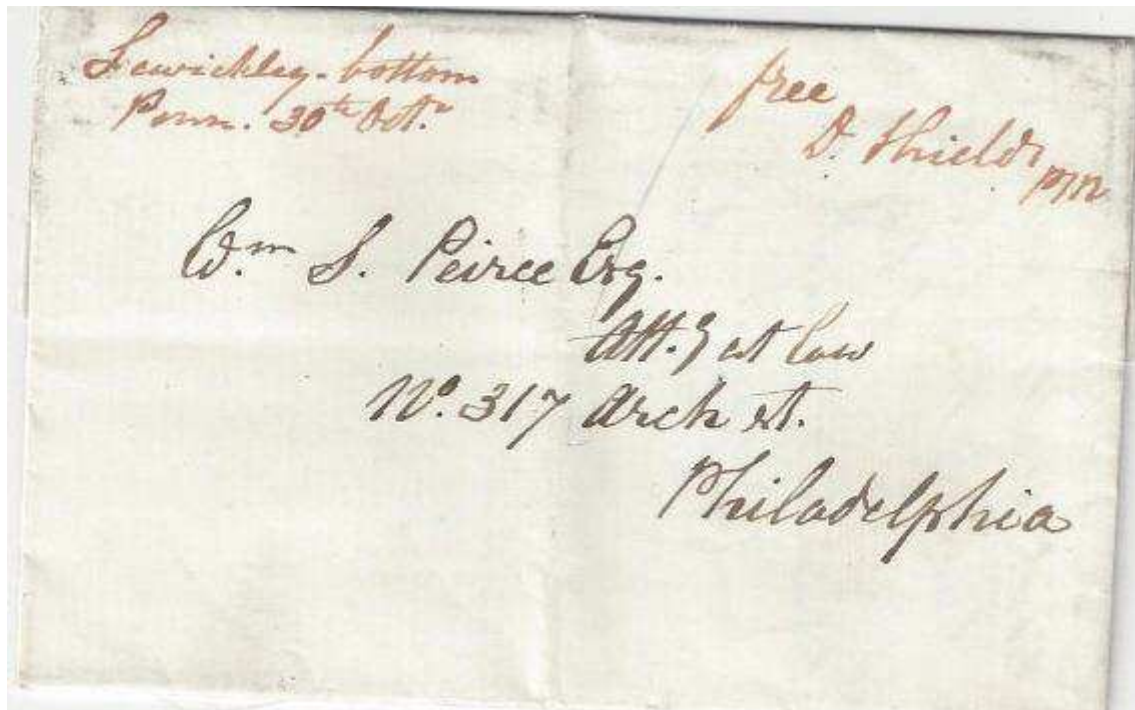 Sewickley-bottom
Penn. 30th Octr.
free
D. Shields PM
Wm. S. Peirce Esq.
Att.y at law
No. 317 Arch st.
Philadelphia